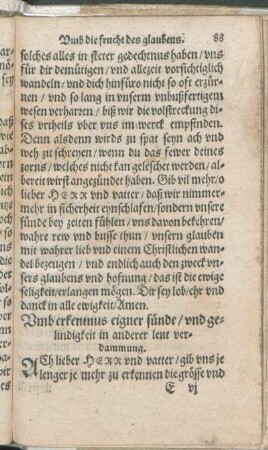 Vmb die frucht des glaubens. 88
solches alles in steter gedechtnus haben / vns
für dir demütigen / vnd allezeit vorsichtiglich
wandeln / vnd dich hinfüro nicht so offt erzür-
nen / vnd so lang in vnserm vnbußfertigem
wesen verharren / biß wir die volstreckung di-
ses vrtheils vber vns im werck empfinden.
Denn alsdenn wirds zu spat seyn ach vnd
weh zu schreyen / wenn du das fewer deines
zorns / welches nicht kan geleschet werden / al-
bereit wirst angezündet haben. Gib vil mehr / o
lieber HERR vnd vatter / daß wir nimmer-
mehr in sicherheit eynschlafen / sondern vnsere
sünde bey zeiten fühlen / vns davon bekehren /
wahre rew vnd busse thun / vnsern glauben
mit wahrer lieb vnd einem Christlichen wan-
del bezeugen / vnd endlich auch den zweck vn-
sers glaubens vnd hofnung / das ist die ewige
seligkeit / erlangen mögen. Dir sey lob / ehr vnd
danck in alle ewigkeit / Amen.
Vmb erkentnus eigner sünde / vnd ge-
lindigkeit in anderer leut ver-
dammung.
ACh lieber HERR vnd vatter / gib vns je
lenger je mehr zu erkennen die grösse vnd
E vj